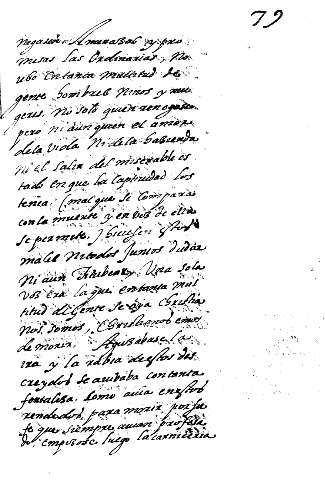 79
negasen. Amenazas y pro
mesas las ordinarias, y no
ubo en tanta multitud de
gente hombres niños y mu
geres, no solo quien renegase
pero ni aun quien el amor
de la vida ni de la hazienda
ni el salir del miserable es
tado en que la captiuidad los
tenia (mal que se compara
con la muerte y en vez de ella
se permite,) hiziesen estos
males todos juntos dudar
ni aun titubear, Una sola
voz era la que en tanta mul
titud de gente se oya christia
nos somos, christianos emos
de morir. Apurabase la
ira y la rabia de estos des
creydos se acababa con tanta
fortaleza, como auia en estos
rendidos, para morir por la
fe que siempre auian profesa
do, empezose luego la carniceria